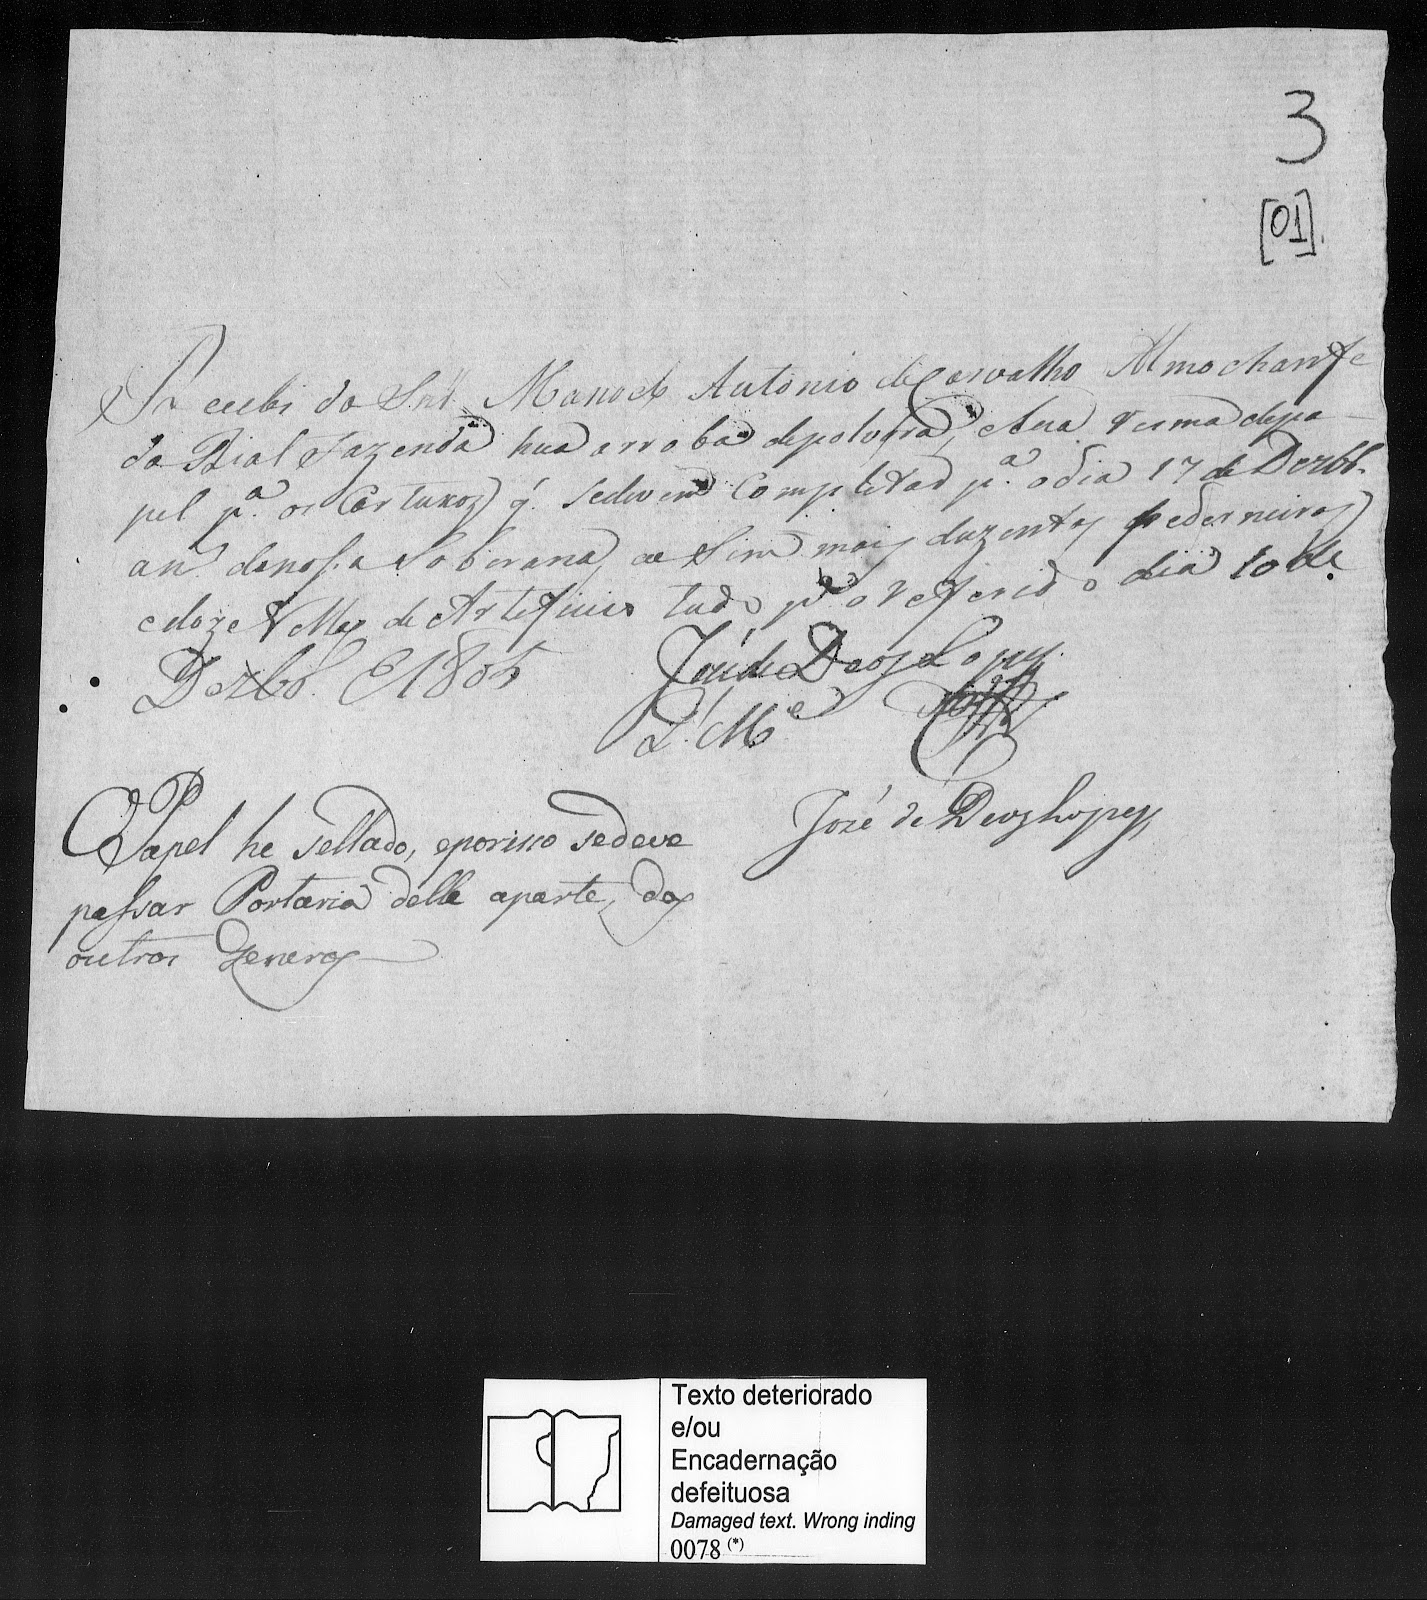 3
[01].
Recebi do Snr. Manoel Antonio de Carvalho Almocharife
da Rial Fazenda hua arroba depolvora, ehua resma depa-
pel pª. os Cartuxos q̃. sedevem Completar pª. odia 17 de Dezbr.
an. denossa Soberana, ae Sim mais duzentas pederneiras
edoze de Artificio tudo pª. o referido dia 10 de
Dezbr. 1805
José de Deos Lopes
José de Deos Lopes
O Papel he Sellado, eporisso sedeve
passar Portaria delle aparte, dos
outros Generos
Texto deteriorado
e/ou
Encadernação
defeituosa
Damaged text. Wrong inding
0078 (*)